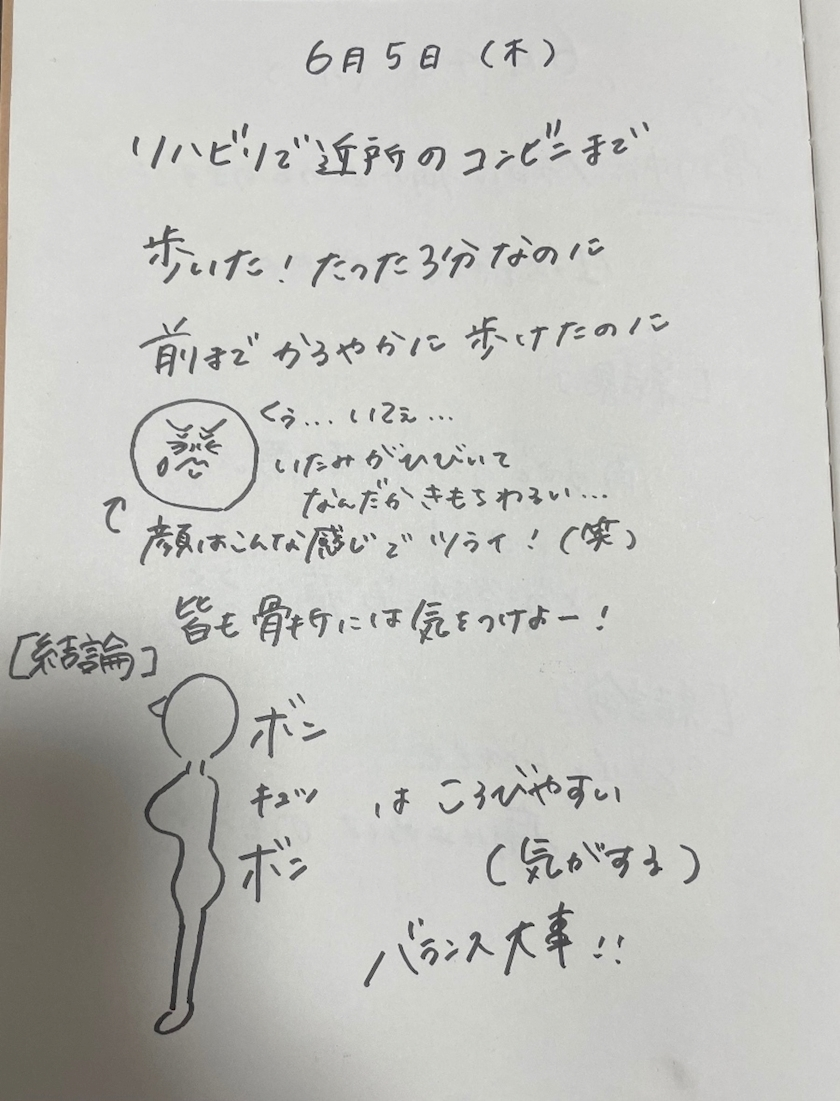 6月5日（木）
リハビリで近所のコンビニまで
歩いた！たった3分なのに
前まで かろやかに 歩けたのに
くぅ…いてぇ…
いたみがひびいて
なんだかきもちわるい…
顔はこんな感じでツライ！（笑）
皆も骨折には気をつけよー！
[結論]
ボン
キュッ は ころびやすい
ボン （気がする）
バランス大事!!